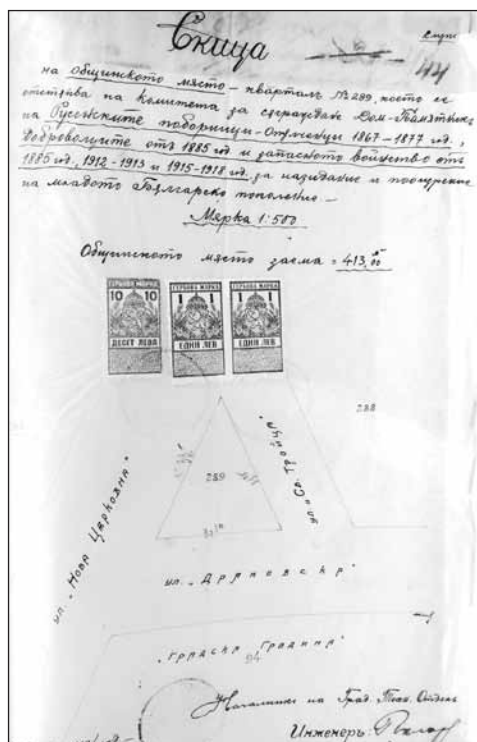 Скица
44
на общинското място – кварталъ № 289, което се
отстъпва на комитета за съграждане Дом-Паметникъ
на Русенските поборници-Опълченци 1867–1877 год.,
Доброволците отъ 1885 год. и запасното войнство отъ
1885 год., 1912-1913 и 1915-1918 год. за назидание и поощрение
на младото Българско поколение –
Мярка 1:500
Общинското място заема = 413.00
ГЕРБОВА МАРКА ГЕРБОВА МАРКА ГЕРБОВА МАРКА
10 10 1 1 1 1
ДЕСЕТ ЛЕВА ЕДИН ЛЕВ ЕДИН ЛЕВ
288
289
ул. „Нова Църковна"
ул. „Св. Тройца"
ул. „Дряновска"
„Градска Градина"
94
Началникъ на Град. Техн. Отдель
Инженеръ: